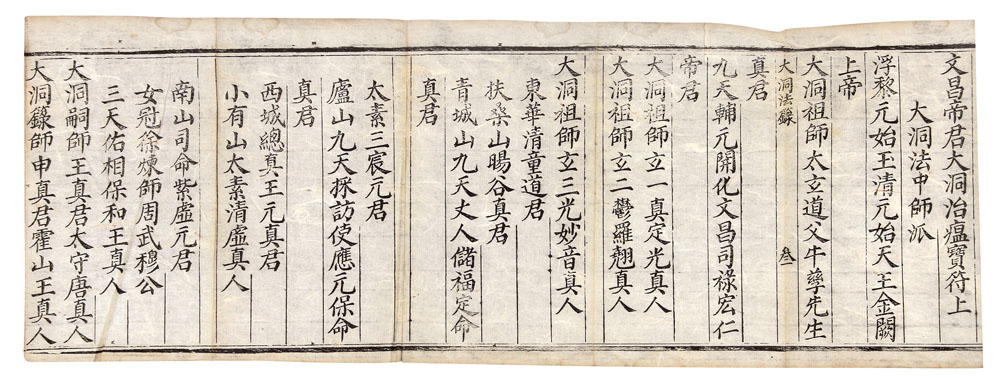 文昌帝君大洞治瘟寶符上
大洞法中師派
浮黎元始玉清元始天王金闕
上帝
大洞祖師太玄道父牛孳先生
大洞法籙
叁一
真君
九天輔元開化文昌司祿宏仁
帝君
大洞祖師玄一真定光真人
大洞祖師玄二鬱羅翹真人
大洞祖師玄三光妙音真人
東華清童道君
扶桑山暘谷真君
青城山九天丈人儲福定命
真君
太素三宸元君
廬山九天採訪使應元保命
真君
西城總真王元真君
小有山太素清虛真人
南山司命紫虛元君
女冠徐煉師周武穆公
三天佑相保和王真人
大洞嗣師王真君太守唐真人
大洞籙師申真君霍山王真人